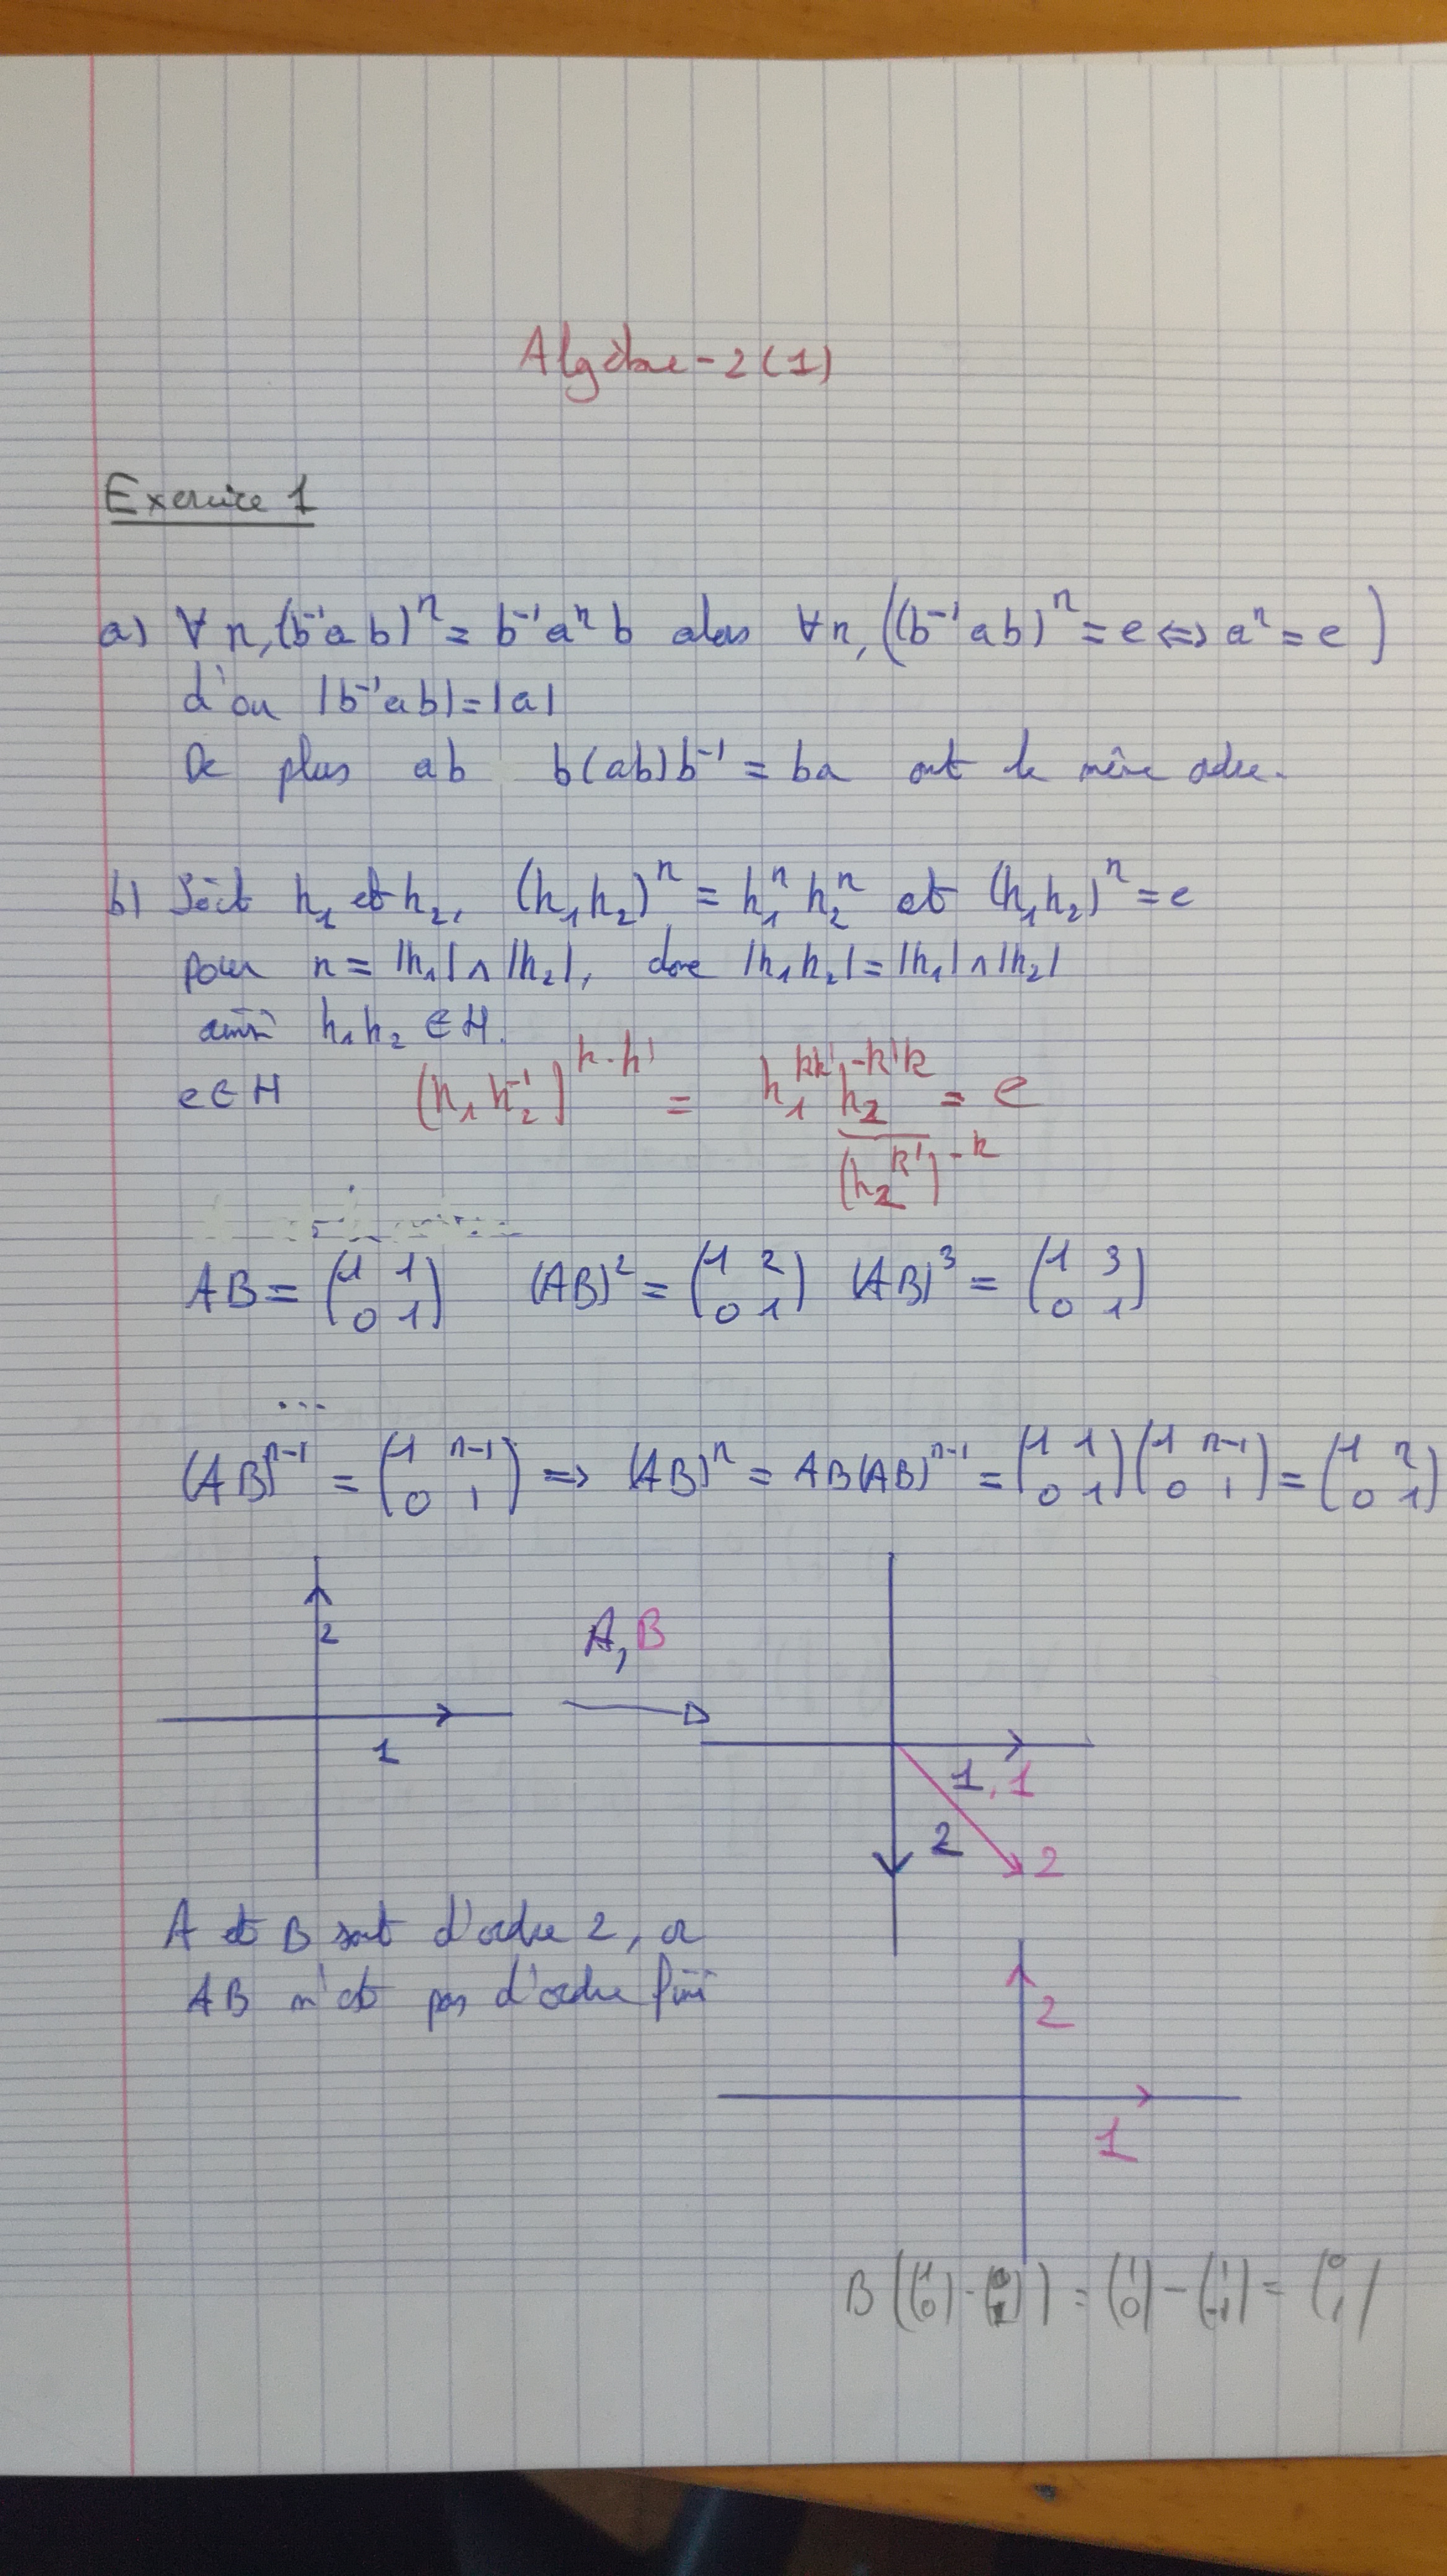 Algèbre-2(1)
Exercice 1
a) ∀n, (b⁻¹ab)ⁿ = b⁻¹aⁿb alors ∀n, ((b⁻¹ab)ⁿ = e ⇔ aⁿ = e)
d'où |b⁻¹ab| = |a|
De plus ab b(ab)b⁻¹ = ba ont le même ordre.
b) Soit h₁ et h₂, (h₁h₂)ⁿ = h₁ⁿ h₂ⁿ et (h₁h₂)ⁿ = e
pour n = |h₁| ∧ |h₂|, donc |h₁h₂| = |h₁| ∧ |h₂|
ainsi h₁h₂ ∈ H.
e ∈ H (h₁ h₂⁻¹)^(k·k') = h₁^(kk') h₂^(-k'k) = e
(h₂^(k'))^(-k)
AB = (1 1; 0 1) (AB)² = (1 2; 0 1) (AB)³ = (1 3; 0 1)
...
(AB)ⁿ⁻¹ = (1 n-1; 0 1) ⇒ (AB)ⁿ = AB(AB)ⁿ⁻¹ = (1 1; 0 1)(1 n-1; 0 1) = (1 n; 0 1)
2
1
A, B
1, 1
2 2
A et B sont d'ordre 2, or
AB n'est pas d'ordre fini
2
1